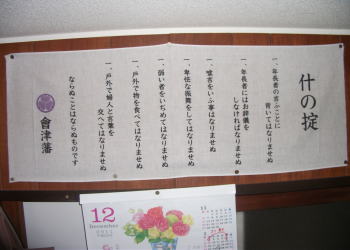 什の掟
一、年長者の言ふことに
背いてはなりませぬ
一、年長者にはお辞儀を
しなければなりませぬ
一、嘘言をいふ事はなりませぬ
一、卑怯な振舞をしてはなりませぬ
一、弱い者をいぢめてはなりませぬ
一、戸外で物を食べてはなりませぬ
一、戸外で婦人と言葉を
交へてはなりませぬ
ならぬことはならぬものです
會津藩
12
December
2011